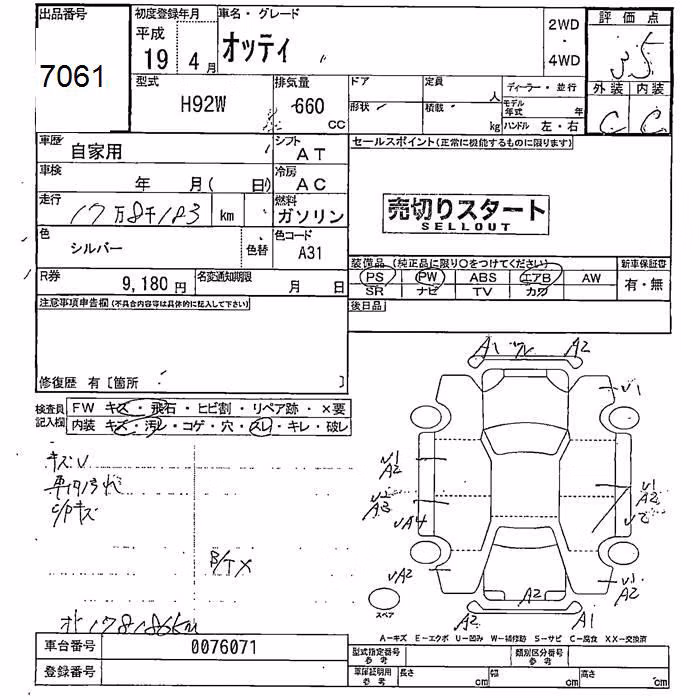 出品番号
7061
初度登録年月
平成
19年 4月
車名・グレード
オッティ
2WD
・
4WD
評価点
3.5
外装 内装
C C
型式
H92W
排気量
660
CC
ドア
形状
定員
人
積載
kg
ディーラー・並行
モデル年式
年
ハンドル 左・右
車歴
自家用
シフト
AT
車検
年 月( 日)
冷房
AC
走行
17万8千183 km
燃料
ガソリン
色
シルバー
色替
色コード
A31
R券
9,180円
名変通知期限
月 日
セールスポイント(正常に機能するものに限ります)
売切りスタート
SELLOUT
装備品(純正品に限り○をつけてください)
PS PW ABS エアB AW
SR ナビ TV カワ
新車保証書
有・無
後日品
注意事項申告欄(不具合内容等は具体的に記入して下さい)
修復歴 有 [箇所 ]
検査員記入欄
FW キズ・飛石・ヒビ割・リペア跡・×要
内装 キズ・汚レ・コゲ・穴・スレ・キレ・破レ
キズU
車内汚れ
C/Pキズ
178186km
A1 A2
U1
U1
A2
A3
UA4
UA2
U1
A2
U2
A2
A2
A2
A1
スペア
A−キズ E−エクボ U−凹み W−補修跡 S−サビ C−腐食 XX−交換済
車台番号
0076071
登録番号
型式指定番号
参考
類別区分番号
参考
車庫証明用
参考
長さ cm
幅 cm
高さ cm